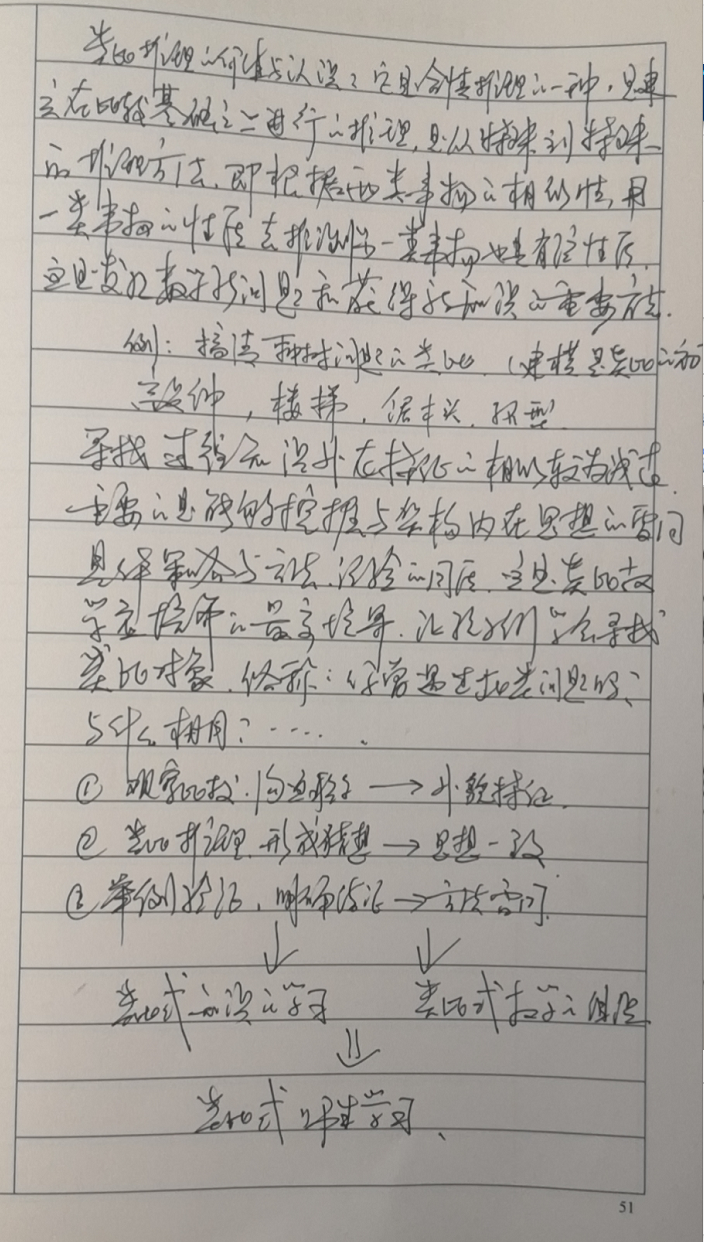 类比推理的价值与认识：它是合情推理的一种，是建
立在比较基础之上进行的推理，是从特殊到特殊
的推理方法，即根据两类事物的相似性，用
一类事物的性质去推测另一类事物也具有该性质
这是发现数学新问题和获得新知识的重要方法．
例：搞清 种树问题的类比．（建模是类比的
敲钟，楼梯，锯木头，
寻找 知识外在特征的相似较为浅过
主要的是能够挖掘与架构内在思想的
具体策略与方法 的同质．这是类比教
学应培师的最高境界．让孩子们学会寻找
类比对象，你曾遇过此类问题吗？
与什么相同？……．
① 观察比较． → 外貌特征．
② 类比推理 形成猜想 → 思想一致
③ 举例验证，明确结论 → 方法
↓ ↓
类比式知识的学习 类比式教学的
⇓
类比式 学习．
51